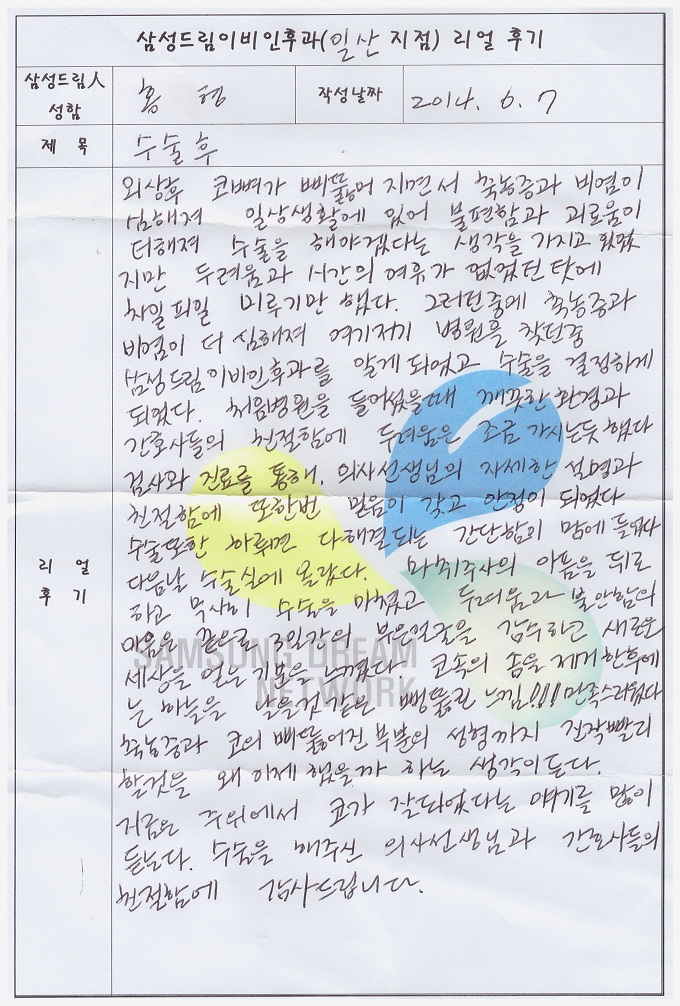 삼성드림이비인후과(일산 지점) 리얼 후기
삼성드림人 성함
홍 형
작성날짜
2014. 6. 7
제 목
수술후
리 얼 후 기
외상후 코뼈가 삐뚫어 지면서 축농증과 비염이
심해져 일상생활에 있어 불편함과 괴로움이
더해져 수술을 해야겠다는 생각을 가지고 있었
지만 두려움과 시간의 여유가 없었던 탓에
차일피일 미루기만 했다. 그러던중에 축농증과
비염이 더 심해져 여기저기 병원을 찾던중
삼성드림이비인후과를 알게되었고 수술을 결정하게
되었다. 처음병원을 들어섰을때 깨끗한 환경과
간호사들의 친절함에 두려움은 조금 가시는듯 했다
검사와 진료를 통해, 의사선생님의 자세한 설명과
친절함에 또한번 믿음이 갖고 안정이 되었다
수술또한 하루면 다해결되는 간단함이 맘에 들었다
다음날 수술실에 올랐다. 마취주사의 아픔을 뒤로
하고 무사히 수술을 마쳤고 두려움과 불안함의
마음은 끝으로 3일간의 부은얼굴을 감수하고 새로운
세상을 얻을 기분을 느꼈다. 코속의 솜을 제거한후에
는 하늘을 날을것 같은 뻥뚫린 느낌!!! 만족스러웠다
축농증과 코의 삐뚫어진 부분의 성형까지 진작 빨리
할것을 왜 이제 했을까 하는 생각이 든다.
지금은 주위에서 코가 잘되었다는 얘기를 많이
듣는다. 수술을 해주신 의사선생님과 간호사들의
친절함에 감사드립니다.
SAMSUNG DREAM
NETWORK